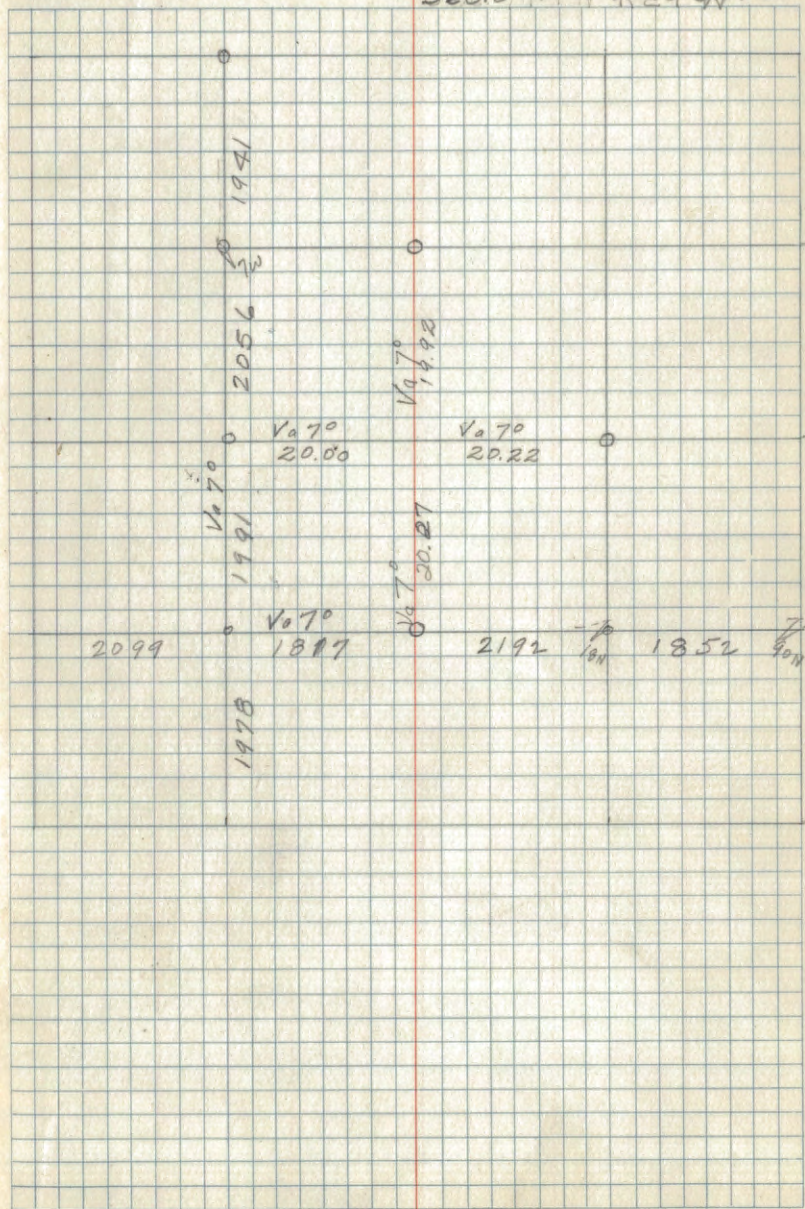 1941
2W
2056
Va 7°
19.92
Va 7°
20.00
Va 7°
20.22
Va 7°
1991
Va 7°
20.27
2099
Va 7°
2192
18N
1852
1978